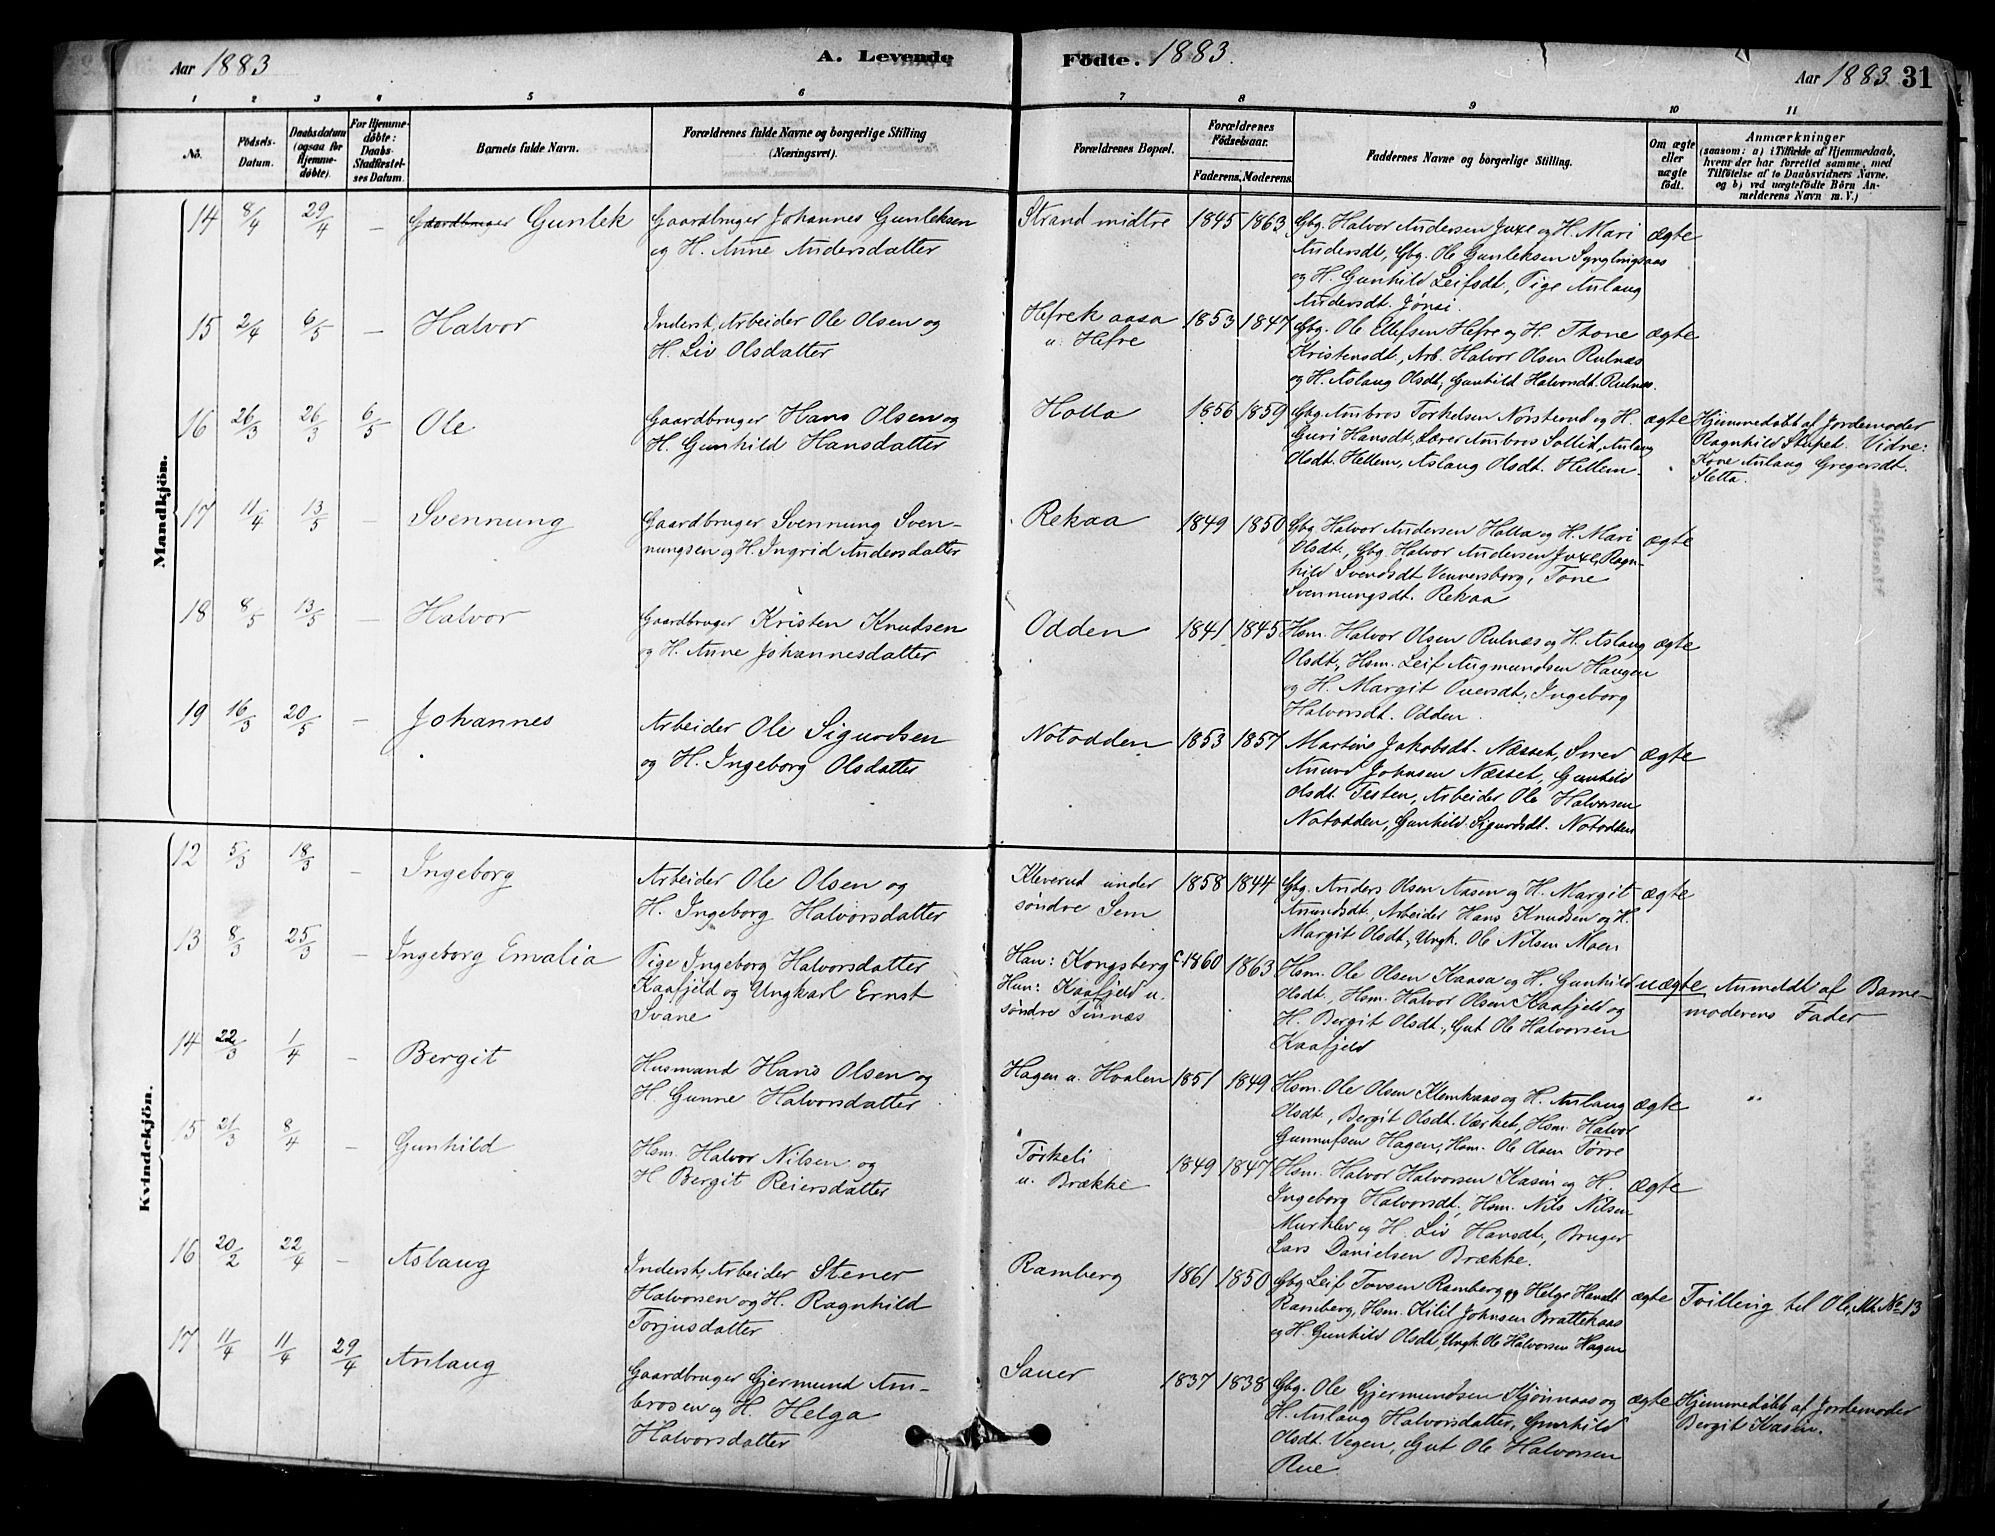 Aar 1883
A. Levende Fødte. 1883.
Aar 1883 31
1 2 3 4 5 6 7 8 9 10 11
No.
Födsels-
Datum.
Daabsdatum
(ogsaa for
Hjemme-
døbte).
For Hjemme-
døbte:
Daabs-
Stadfæstel-
ses Datum.
Barnets fulde Navn.
Forældrenes fulde Navne og borgerlige Stilling
(Næringsvei).
Forældrenes Bopæl.
Forældrenes
Födselsaar.
Faderens. Moderens.
Faddernes Navne og borgerlige Stilling.
Om ægte
eller
uægte
født.
Anmærkninger
(saasom: a) i Tilfælde af Hjemmedaab,
hvem der har forrettet samme, med
Tilføielse af to Daabsvidners Navne.
og b) ved uægtefødte Börn An-
melderens Navn m. V.)
Mandkjön.
14 8/4 29/4 — Gaardbruger Gunlek
Gaardbruger Johannes Gunleksen
og H. Anne Andersdatter
Strand midtre 1845 1863
Gbg. Halvor Andersen Juxe og H. Mari
Andersdt., Gbg. Ole Gunleksen Synglingsaas
og H. Gunhild Leifsdt., Pige Anlaug
Andersdt. Jønsi.
ægte
15 2/4 6/5 — Halvor
Inderst, Arbeider Ole Olsen og
H. Liv Olsdatter
Hefrekaasa
u. Hefre
1853 1847
Gbg. Ole Ellefsen Hefre og H. Thone
Kristensdt., Arb. Halvor Olsen Rulnæs
og H. Aslaug Olsdt., Gunhild Halvorsdt. Rulnes.
ægte
16 26/3 26/3 6/5 Ole
Gaardbruger Hans Olsen og
H. Gunhild Hansdatter
Holla 1856 1859
Gbg. Ambros Torkelsen Nørsterud og H.
Guri Hansdt., Lærer Ambros Sollid, Anlaug
Olsdt. Hellem, Aslaug Olsdt. Hellem.
ægte
Hjemmedøbt af Jordemoder
Ragnhild Stupel. Vidne:
Kone Anlaug Gregersdt.
Sletta.
17 11/4 13/5 — Svennung
Gaardbruger Svennung Sven-
nungsen og H. Ingrid Andersdatter
Rekaa 1849 1850
Gbg. Halvor Andersen Holla og H. Mari
Olsdt., Gbg. Halvor Andersen Juxe, Ragn-
hild Svendsdt Vennersborg, Tone
Svennungsdt. Rekaa
ægte
18 8/5 13/5 — Halvor
Gaardbruger Kristen Knudsen
og H. Anne Johannesdatter
Odden 1841 1845
Hsm. Halvor Olsen Rulnæs og H. Aslaug
Olsdt., Hsm. Leif Augmundsen Haugen
og H. Margit Oversdt., Ingeborg
Halvorsdt. Odden.
ægte
19 16/3 20/5 — Johannes
Arbeider Ole Sigurdsen
og H. Ingeborg Olsdatter
Notodden 1853 1857
Martine Jakobsdt. Næsset, Smed
Amund Johnsen Næsset, Gunhild
Olsdt. Testen, Arbeider Ole Halvorsen
Notodden, Gunhild Sigurdsdt. Notodden
ægte
Kvindekjön.
12 5/3 18/3 — Ingeborg
Arbeider Ole Olsen og
H. Ingeborg Halvorsdatter
Kleverud under
søndre Sem
1858 1844
Gbg. Anders Olsen Aasen og H. Margit
Amundsdt., Arbeider Hans Knudsen og H.
Margit Olsdt., Ungk. Ole Nilsen Moen
ægte
13 8/3 25/3 — Ingeborg Emalia
Pige Ingeborg Halvorsdatter
Kaafjeld og Ungkarl Ernst
Svane
Han: Kongsberg
Hun: Kaafjeld u.
søndre Tinnæs
c. 1860 1863
Hsm. Ole Olsen Kaasa og H. Gunhild
Olsdt., Hsm. Halvor Olsen Kaafjeld og
H. Bergit Olsdt., Gut Ole Halvorsen
Kaafjeld
uægte
Anmeldt af Barne-
moderens Fader
14 22/3 1/4 — Bergit
Husmand Hans Olsen og
H. Gunne Halvorsdatter
Hagen u. Hvalen 1851 1849
Hsm. Ole Olsen Klemkaas og H. Anlaug
Olsdt., Bergit Olsdt. Værket, Hsm. Halvor
Gunnufsen Hagen, Hsm. Ole Olsen Tørre
ægte "
15 21/3 8/4 — Gunhild
Hsm. Halvor Nilsen og
H Bergit Reiersdatter
Torkeli
u. Brække
1849 1847
Hsm. Halvor Halvorsen Kasin og H.
Ingeborg Halvorsdt., Hsm. Nils Nilsen
Murklev og H. Liv Hansdt., Bruger
Lars Danielsen Brække.
ægte
16 20/2 22/4 — Aslaug
Inderst, Arbeider Stener
Halvorsen og H. Ragnhild
Torjusdatter
Ramberg 1861 1850
Gbg Leif Tovsen Ramberg og Helge Hansdt
Ramberg, Hsm. Kitil Johnsen Brattekaas
og H. Gunhild Olsdt., Ungk. Ole Halvorsen Hagen
ægte
Tvilling til Ole, M. No 13
17 11/4 11/4 29/4 Anlaug
Gaardbruger Gjermund Am-
brosen og H. Helga
Halvorsdatter
Sauer 1837 1838
Gbg. Ole Gjermundsen Kjønnaas og
H. Anlaug Halvorsdatter, Gunhild
Olsdt. Vegen, Gut Ole Halvorsen
Rue
ægte
Hjemmedøbt af Jordemoder
Bergit Kasin.